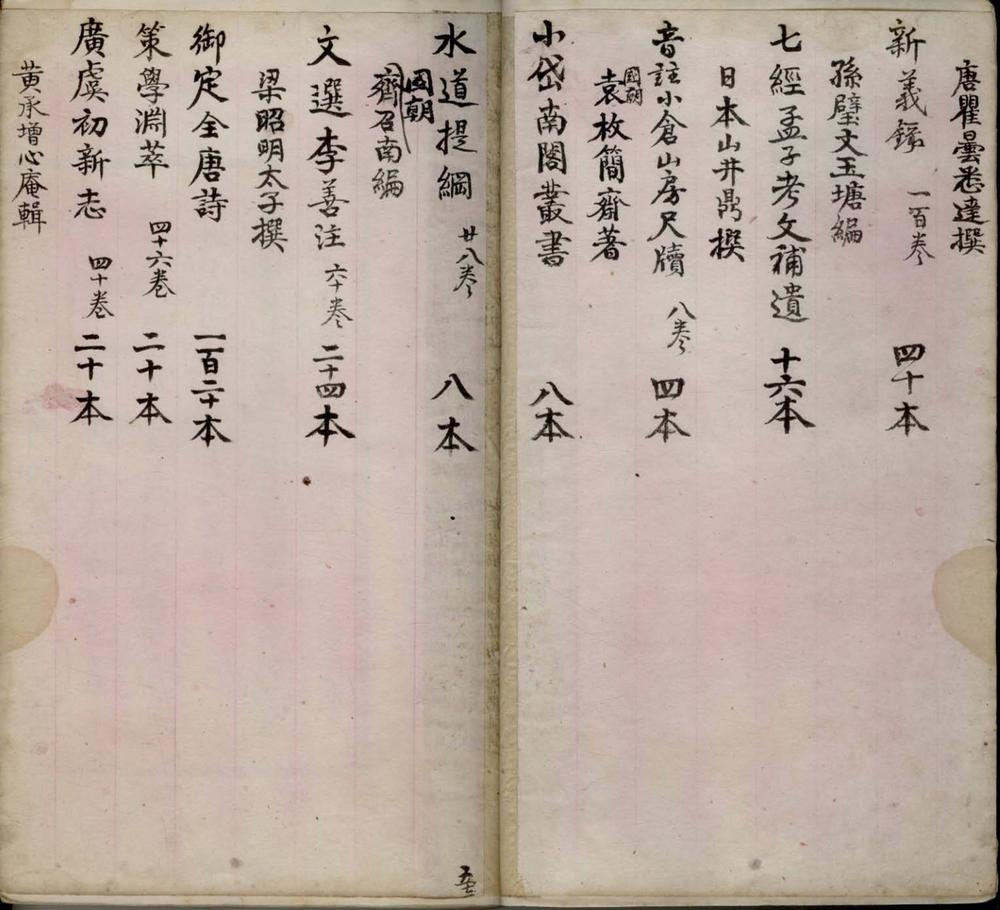 唐瞿曇悉達撰
新義錄 一百卷 四十本
孫璧文玉塘編
七經孟子考文補遺 十六本
日本山井鼎撰
音註小倉山房尺牘 八卷 四本
國朝袁枚簡齋著
小岱南閣叢書 八本
水道提綱 廿八卷 八本
國朝齊召南編
文選李善注 六十卷 二十四本
梁昭明太子撰
御定全唐詩 一百二十本
策學淵萃 四十六卷 二十本
廣虞初新志 四十卷 二十本
黄承增心庵輯